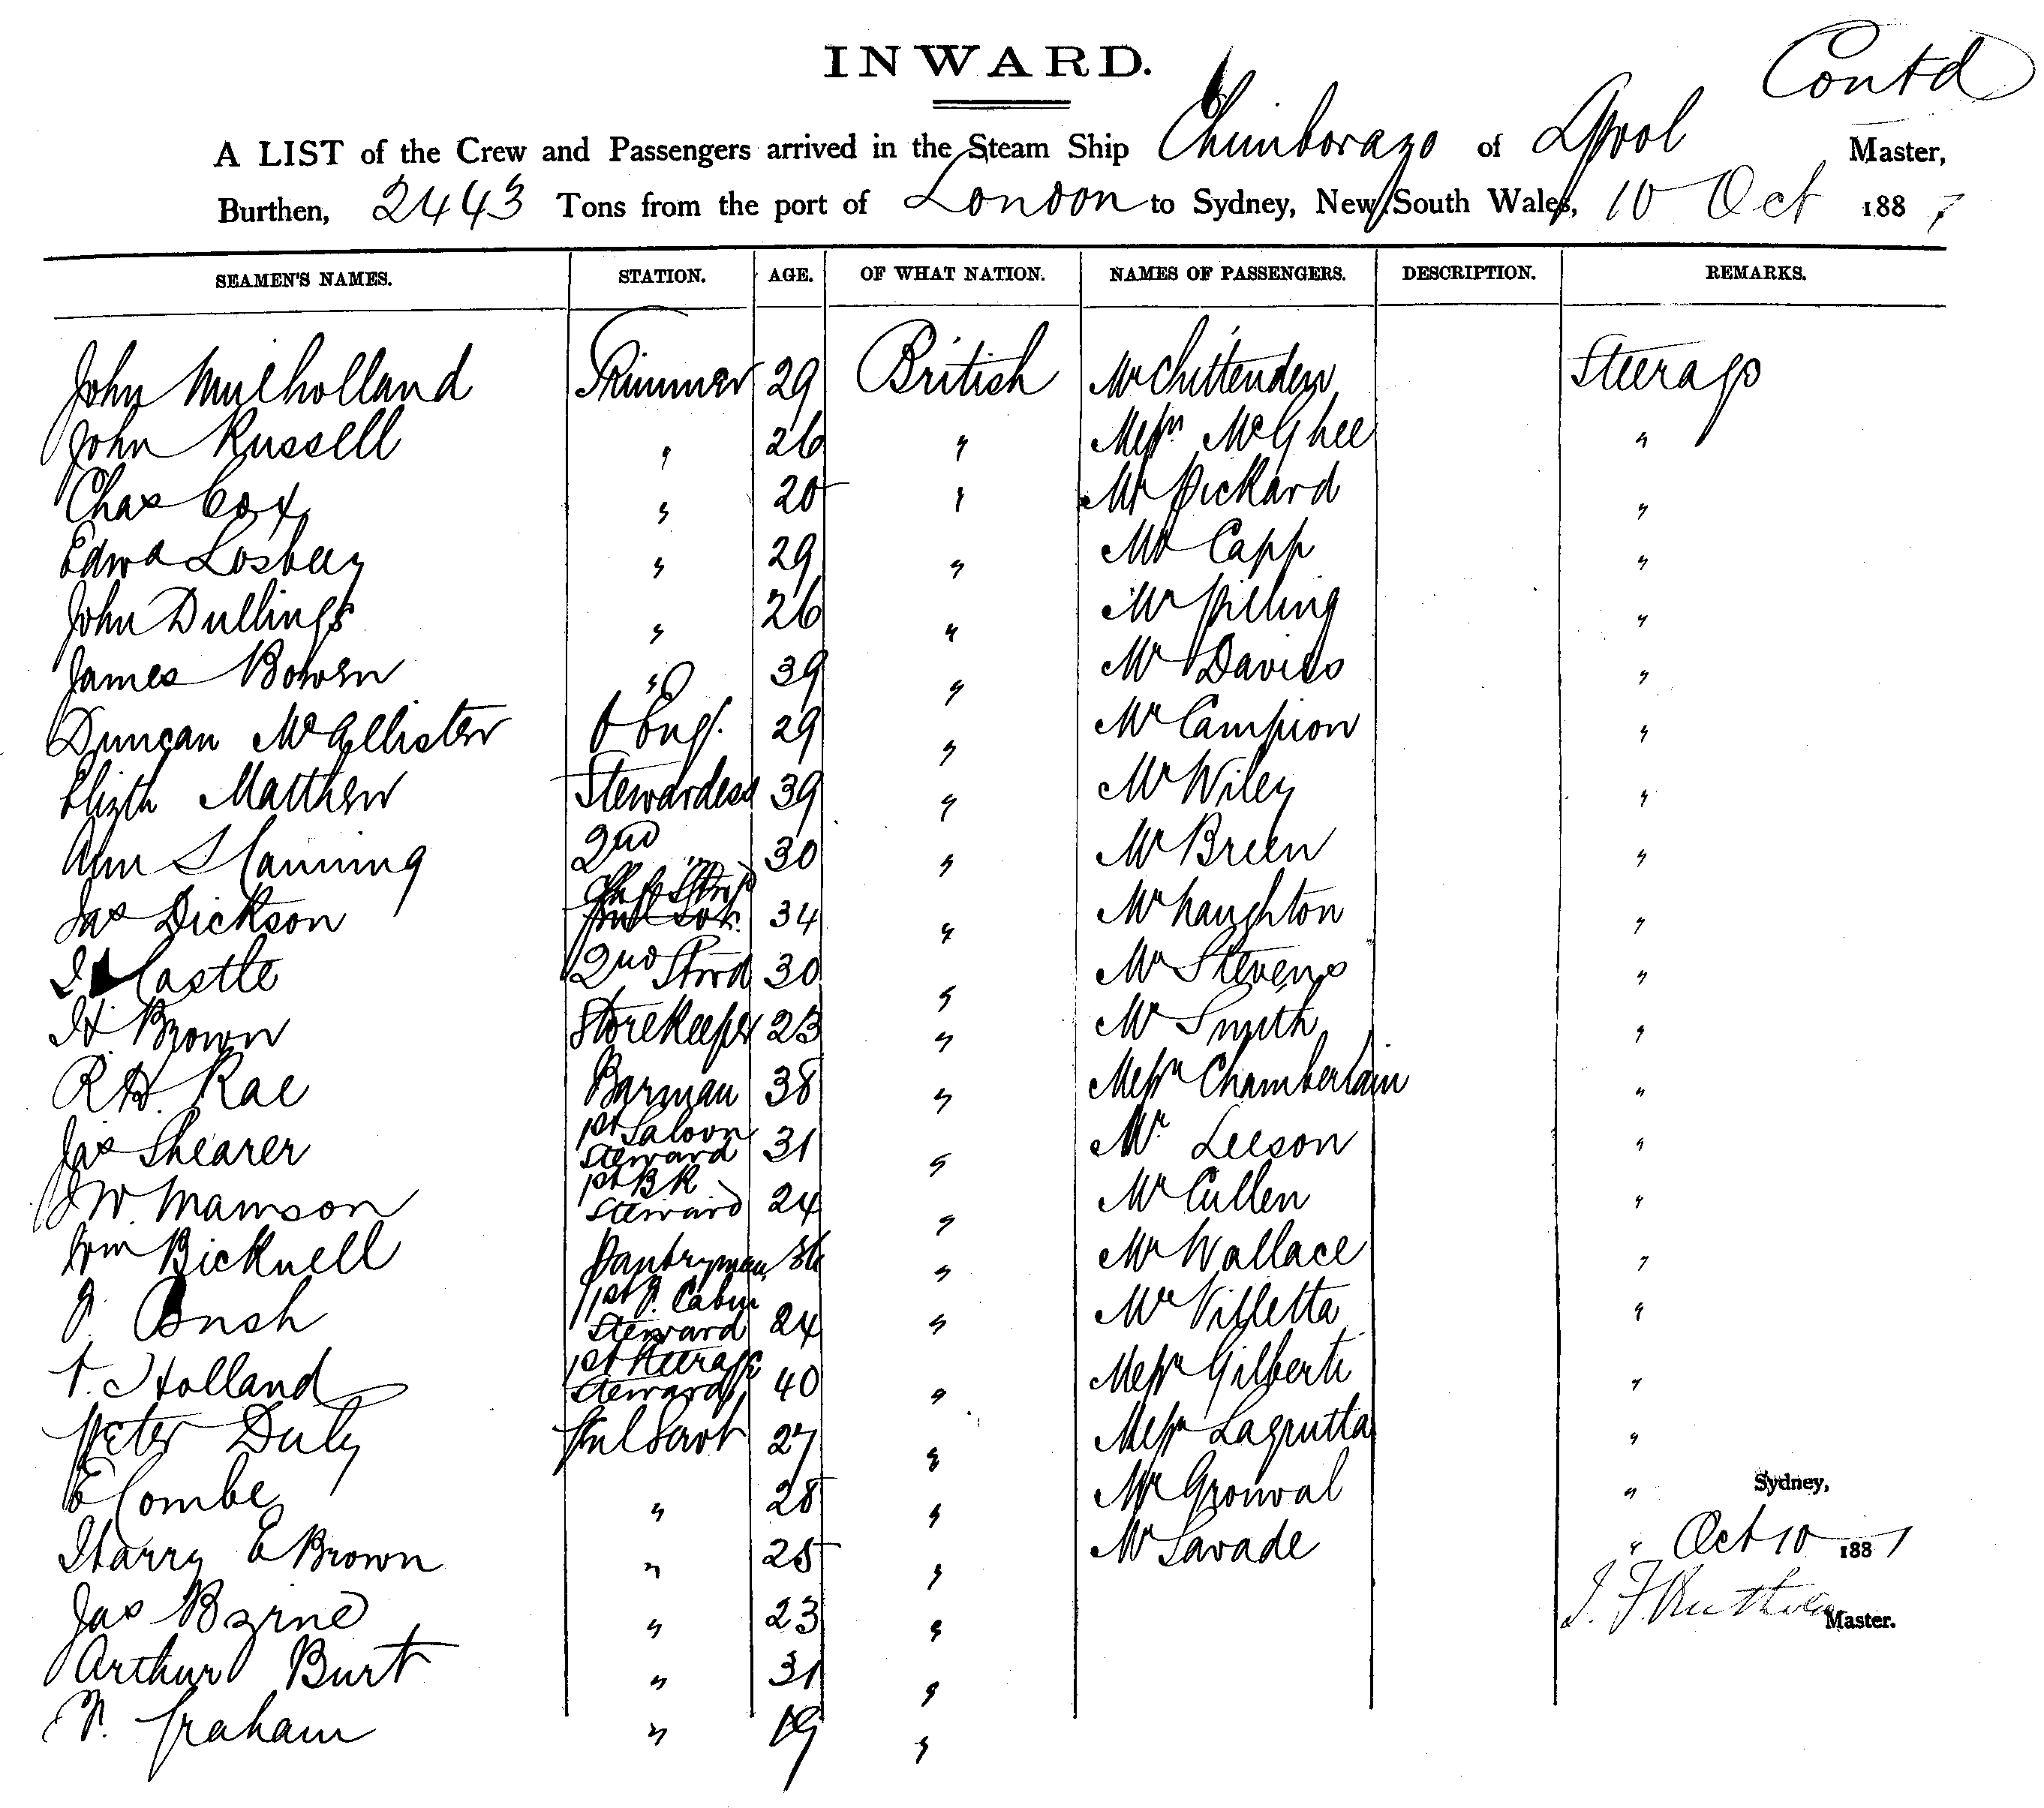 Contd
INWARD.
A LIST of the Crew and Passengers arrived in the Steam Ship Chimborazo of Lpool Master,
Burthen, 2443 Tons from the port of London to Sydney, New South Wales, 10 Oct 1887
SEAMEN'S NAMES. STATION. AGE. OF WHAT NATION. NAMES OF PASSENGERS. DESCRIPTION. REMARKS.
John Mulholland Trimmer 29 British Mr Chittenden Steerage
John Russell " 26 " Messrs McGhee "
Chas Cox " 20 " Mr Pickard "
Edwd Losbey " 29 " Mr Capp "
John Dullings " 26 " Mr Pilling "
James Bowen " 39 " Mr Davies "
Duncan McAllister 29 " Mr Campion "
Elizth Matthew Stewardess 39 " Mr Wiley "
Ann Slanning 2nd " 30 " Mr Breen "
Jas Dickson 34 " Mr Haughton "
Castle 2nd Stwd 30 " Mr Stevens "
H. Brown Storekeeper 23 " Mr Smith "
R.H. Rae Barman 38 " Messrs Chamberlain "
Jas Shearer 1st Saloon Steward 31 " Mr. Leeson "
J W. Mamson 1st BR Steward 24 " Mr Cullen "
Wm Bicknell Pantryman 36 " Mr Wallace "
J. Bush 1st F. Cabin Steward 24 " Mr Villetta "
T. Holland 1st Steerage Steward 40 " Messrs Gilberti "
Peter Duly Genl Servt 27 " Messrs Lagrutta "
E Combe " 28 " Mr Gronval "
Sydney,
Harry E Brown " 25 " Mr Lavade " Oct 10 1887
Jas Byrne " 23 "
J. F. Ruthven Master.
Arthur Burt " 31 "
F. Graham " 19 "